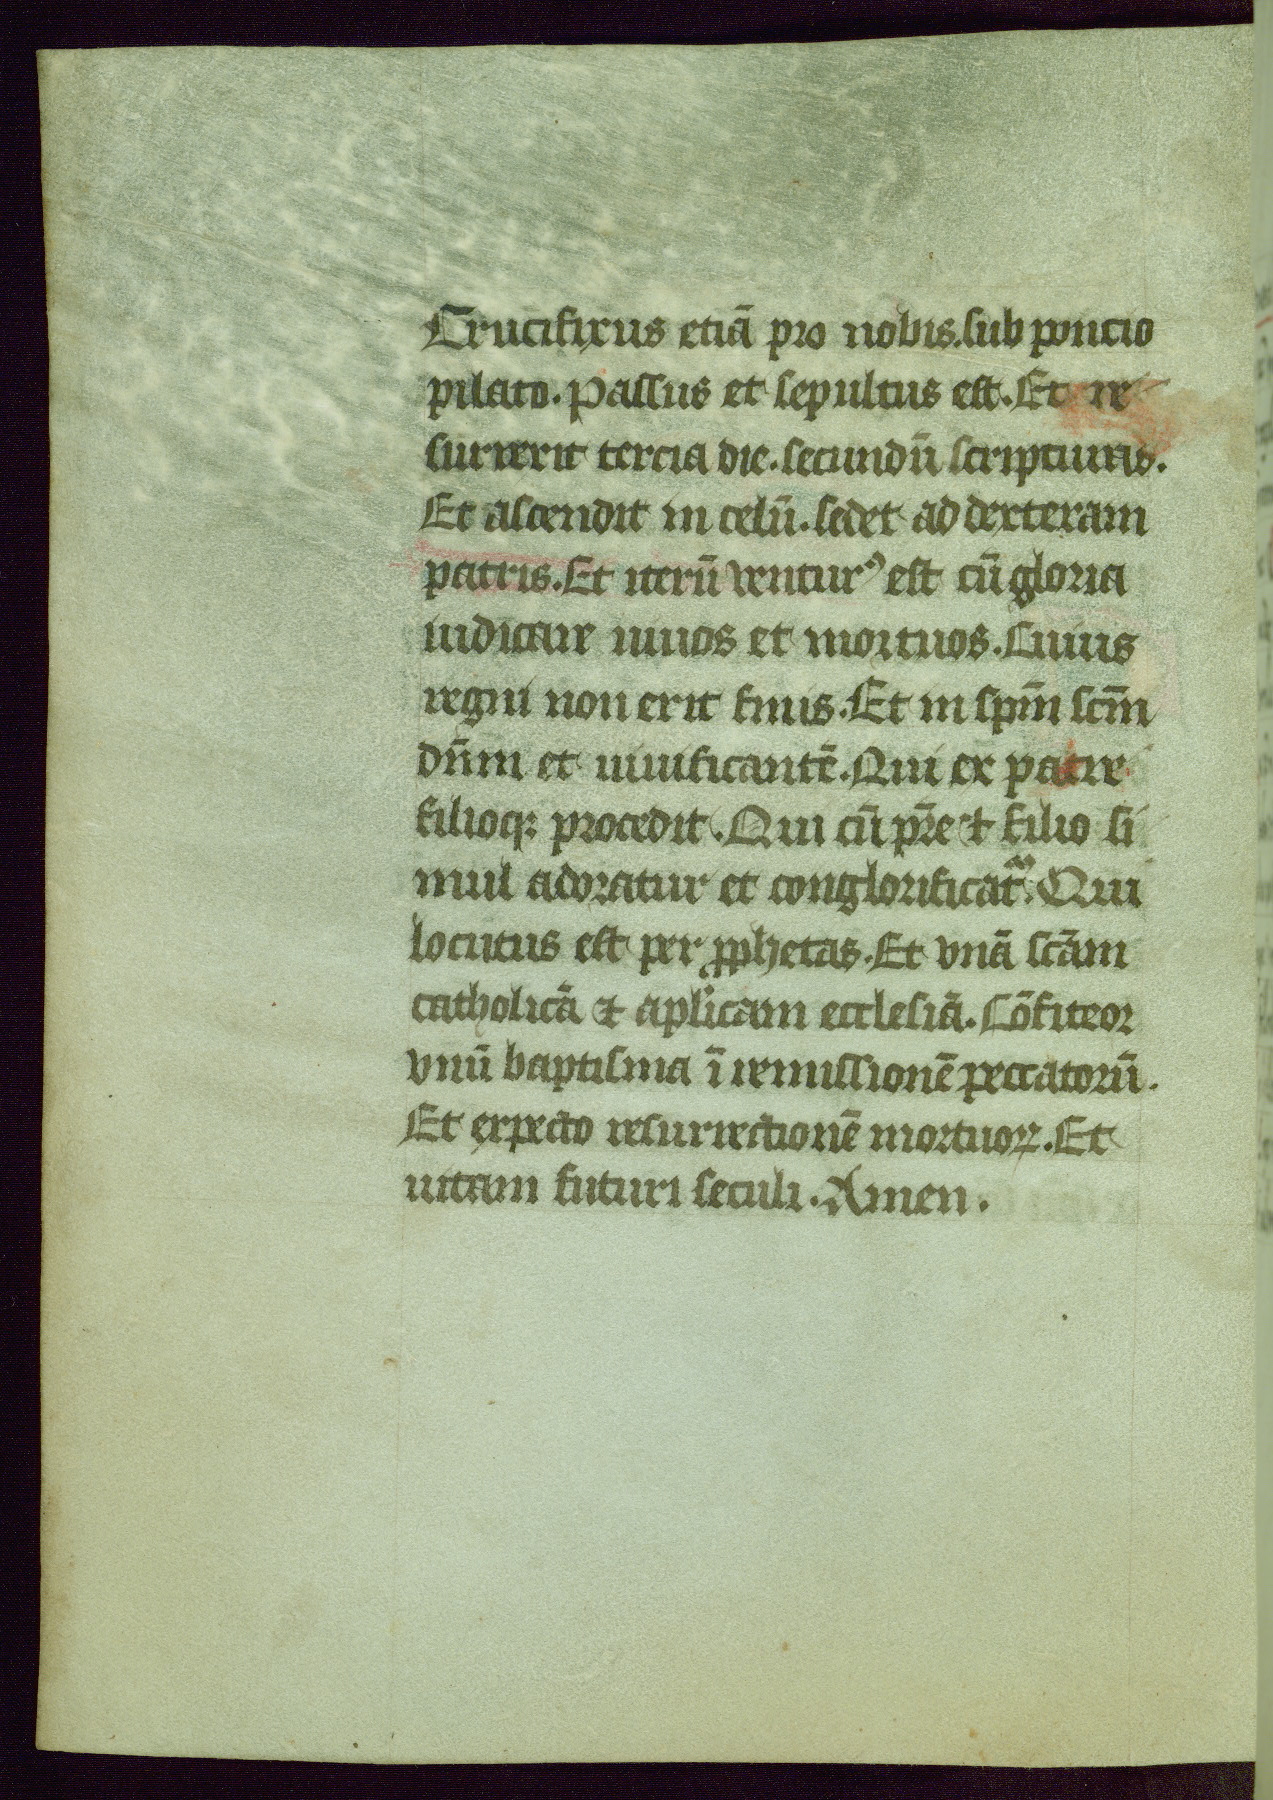 Crucifixus etiā pro nobis.sub poncio
pilato. passus et sepultus est. Et re
surrexit tercia die. secundū scripturas.
Et ascendit in celū. sedet ad dexteram
patris. Et iterū venturꝰ est cū gloria
iudicare uiuos et mortuos. Cuius
regni non erit finis. Et in spm̄ scm̄
dn̄m et uiuificantē. Qui ex patre
filioqꝫ procedit. Qui cū pr̄e ⁊ filio si
mul adoratur et conglorificatᷓ. Qui
locutus est per ꝓphetas. Et vnā scām
catholicā ⁊ apl'icam ecclesiā. Cōfiteor
vnū baptisma ī remissionē peccatorū.
Et expecto resurrectionē mortuoꝝ. Et
uitam futuri seculi. Amen.